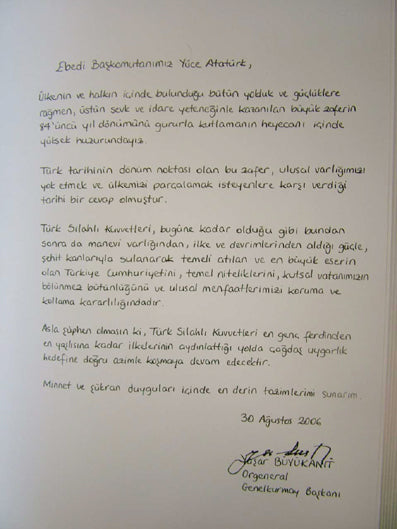 Ebedi Başkomutanımız Yüce Atatürk,
Ülkenin ve halkın içinde bulunduğu bütün yokluk ve güçlüklere
rağmen, üstün sevk ve idare yeteneğinle kazanılan büyük zaferin
84'üncü yıl dönümünü gururla kutlamanın heyecanı içinde
yüksek huzurundayız.
Türk tarihinin dönüm noktası olan bu zafer, ulusal varlığımızı
yok etmek ve ülkemizi parçalamak isteyenlere karşı verdiği
tarihi bir cevap olmuştur.
Türk Silahlı Kuvvetleri, bugüne kadar olduğu gibi bundan
sonra da manevi varlığından, ilke ve devrimlerinden aldığı güçle,
şehit kanlarıyla sulanarak temeli atılan ve en büyük eserin
olan Türkiye Cumhuriyetini, temel niteliklerini, kutsal vatanımızın
bölünmez bütünlüğünü ve ulusal menfaatlerimizi koruma ve
kollama kararlılığındadır.
Asla şüphen olmasın ki, Türk Silahlı Kuvvetleri en genç ferdinden
en yaşlısına kadar ilkelerinin aydınlattığı yolda çağdaş uygarlık
hedefine doğru azimle koşmaya devam edecektir.
Minnet ve şükran duyguları içinde en derin tazimlerimi sunarım.
30 Ağustos 2006
Yaşar BÜYÜKANIT
Orgeneral
Genelkurmay Başkanı